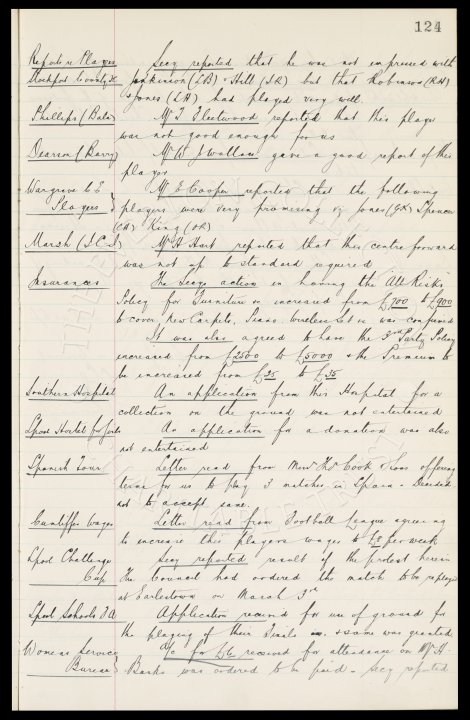 124
Report re Players Secy reported that he was not impressed with
Stockport County Jenkinson (LB) Hill (IR) but that Robinson (RH)
& Jones (LH) had played very well.
Phillips (Bala) Mr T Fleetwood reported that this player
was not good enough for us
Dearson (Barry) Mr W J gave a good report of this
player
Wargrave C E Mr E Cooper reported that the following
Players players were very promising viz Jones (GK) Spencer
King (OR)
Marsh (S.C.I) Mr H Hart reported that this centre forward
was not up to standard required
Insurances The Secys action in having the All Risks
Policy for Furniture re increased from £700 to £900
to cover New Carpets, Piano, Wireless Set re was confirmed
It was also agreed to have the 3rd Party Policy
increased from £2500 to £5000 & the Premium to
be increased from £25 to £35
Southern Hospital An application from this Hospital for a
collection on the ground was not entertained
Lpool Hostel for Girls An application for a donation was also
not entertained
Spanish Tour Letter read from Messrs Thos Cook & Sons offering
terms for us to play 3 matches in Spain - Decided
not to accept same.
Cunliffes Wages Letter read from Football League agreeing
to increase this players wages to £8 per week
Lpool Challenge Secy reported result of the protest herein
Cup The Council had ordered the match to be replayed
at Earlestown on March 3rd
Lpool Schools F A Application received for use of ground for
the playing of their Finals & same was granted
Womens Service A/c for received for attendance on Mr H
Bureau Banks was ordered to be paid - Secy reported